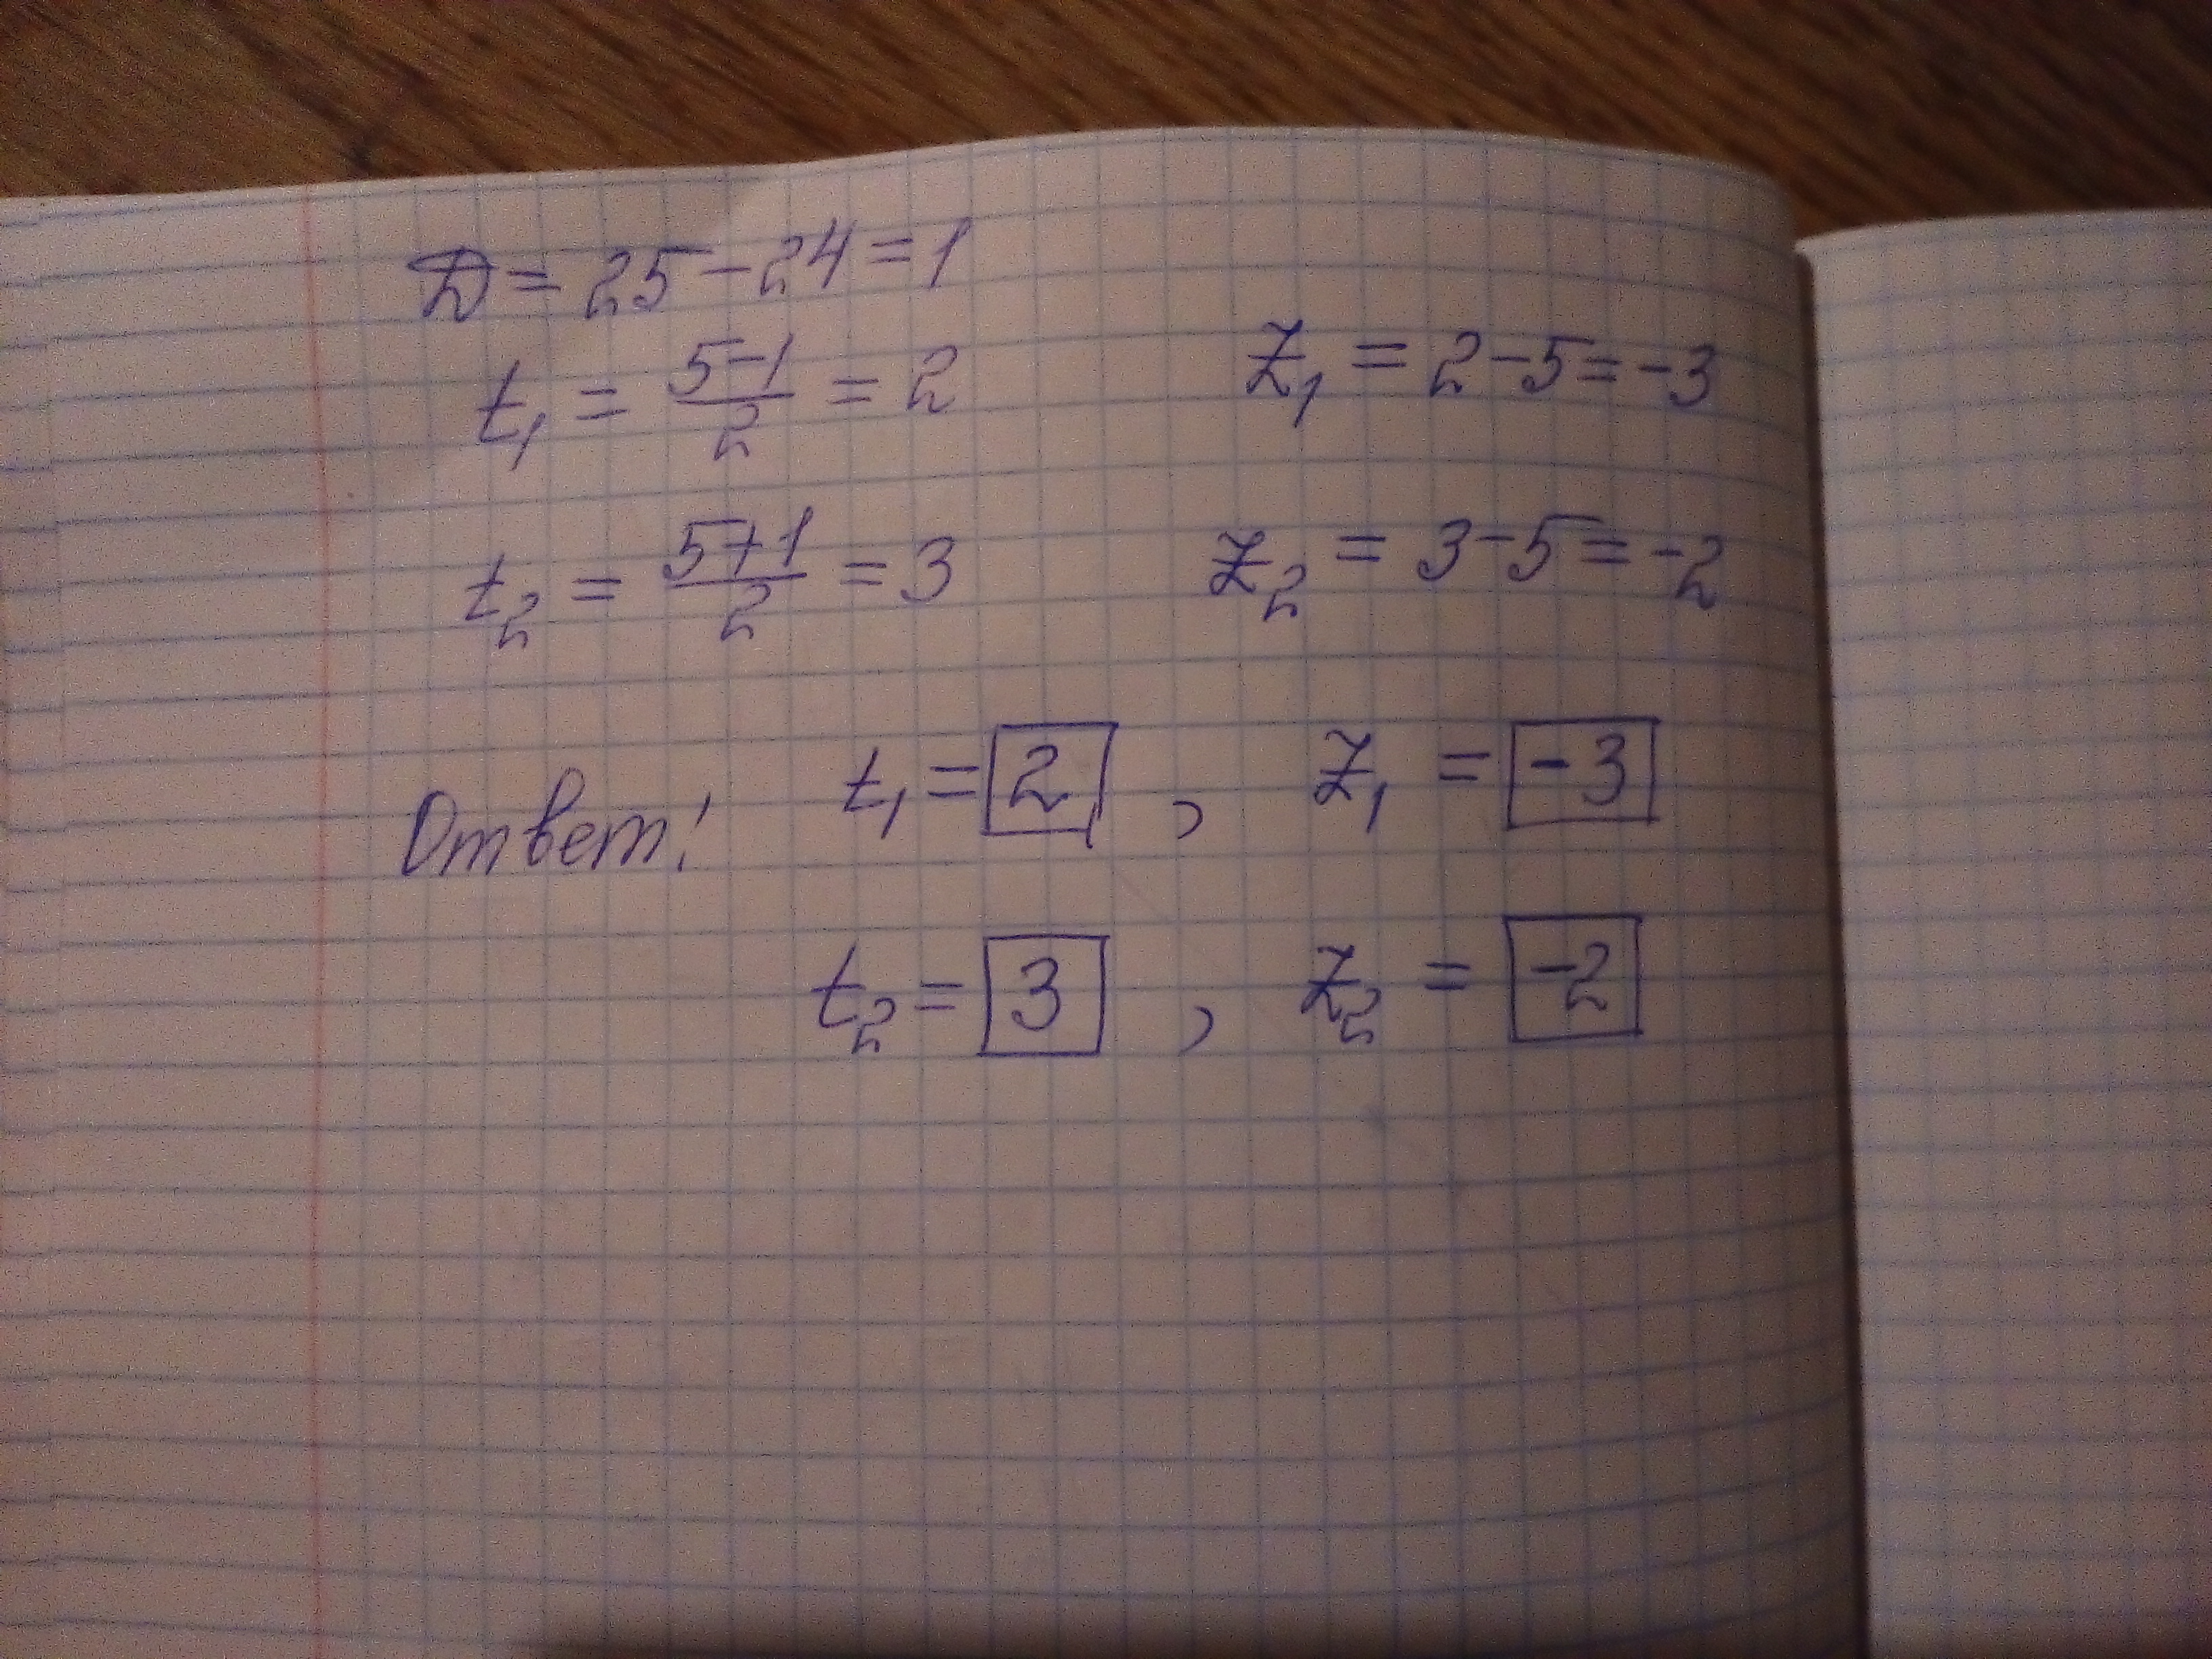 D = 25 - 24 = 1
t₁ = (5-1)/2 = 2    z₁ = 2 - 5 = -3
t₂ = (5+1)/2 = 3    z₂ = 3 - 5 = -2
Ответ! t₁ = 2 , z₁ = -3
t₂ = 3 , z₂ = -2